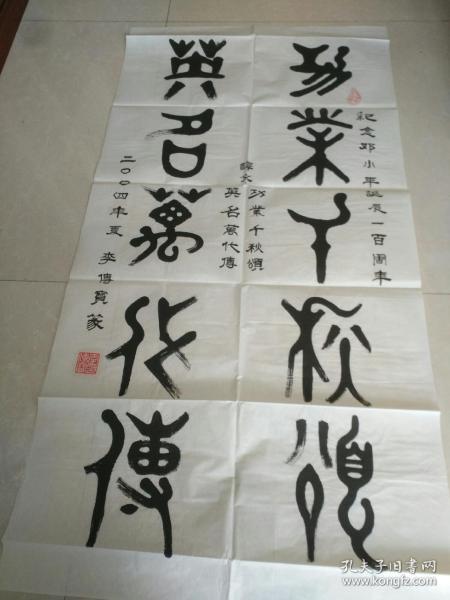 纪念邓小平诞辰一百周年
功業千秋頌
英名萬代傳
釋文
功業千秋頌
英名萬代傳
二〇〇四年夏 李傳寶篆
孔夫子旧书网
www.kongfz.com